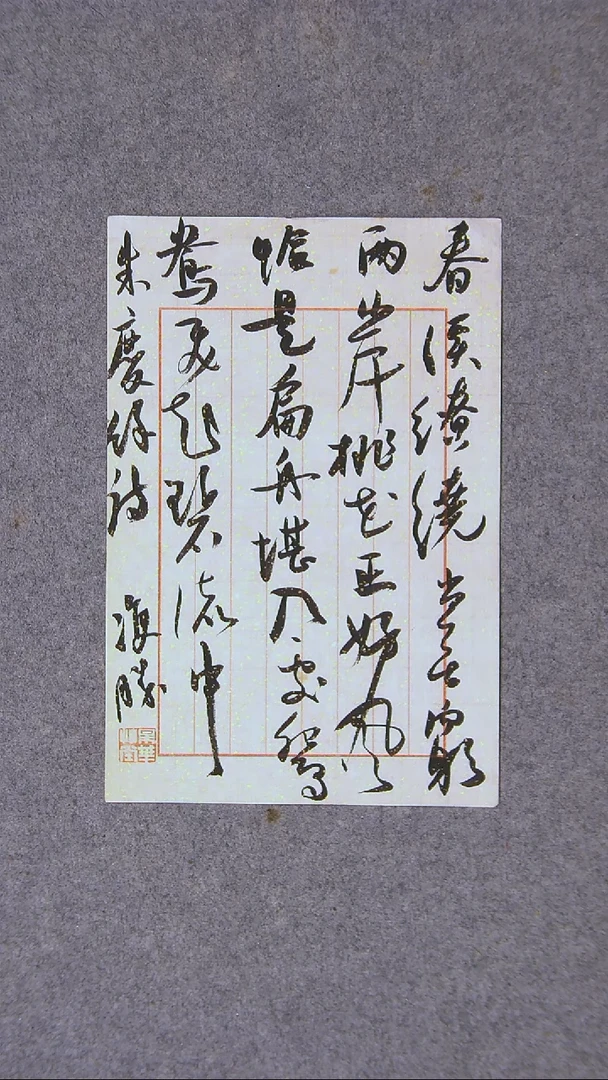 春溪繚繞出無窮
兩岸桃花正好風
恰是扁舟堪入處鴛
鴦飛起碧流中
朱慶餘詩